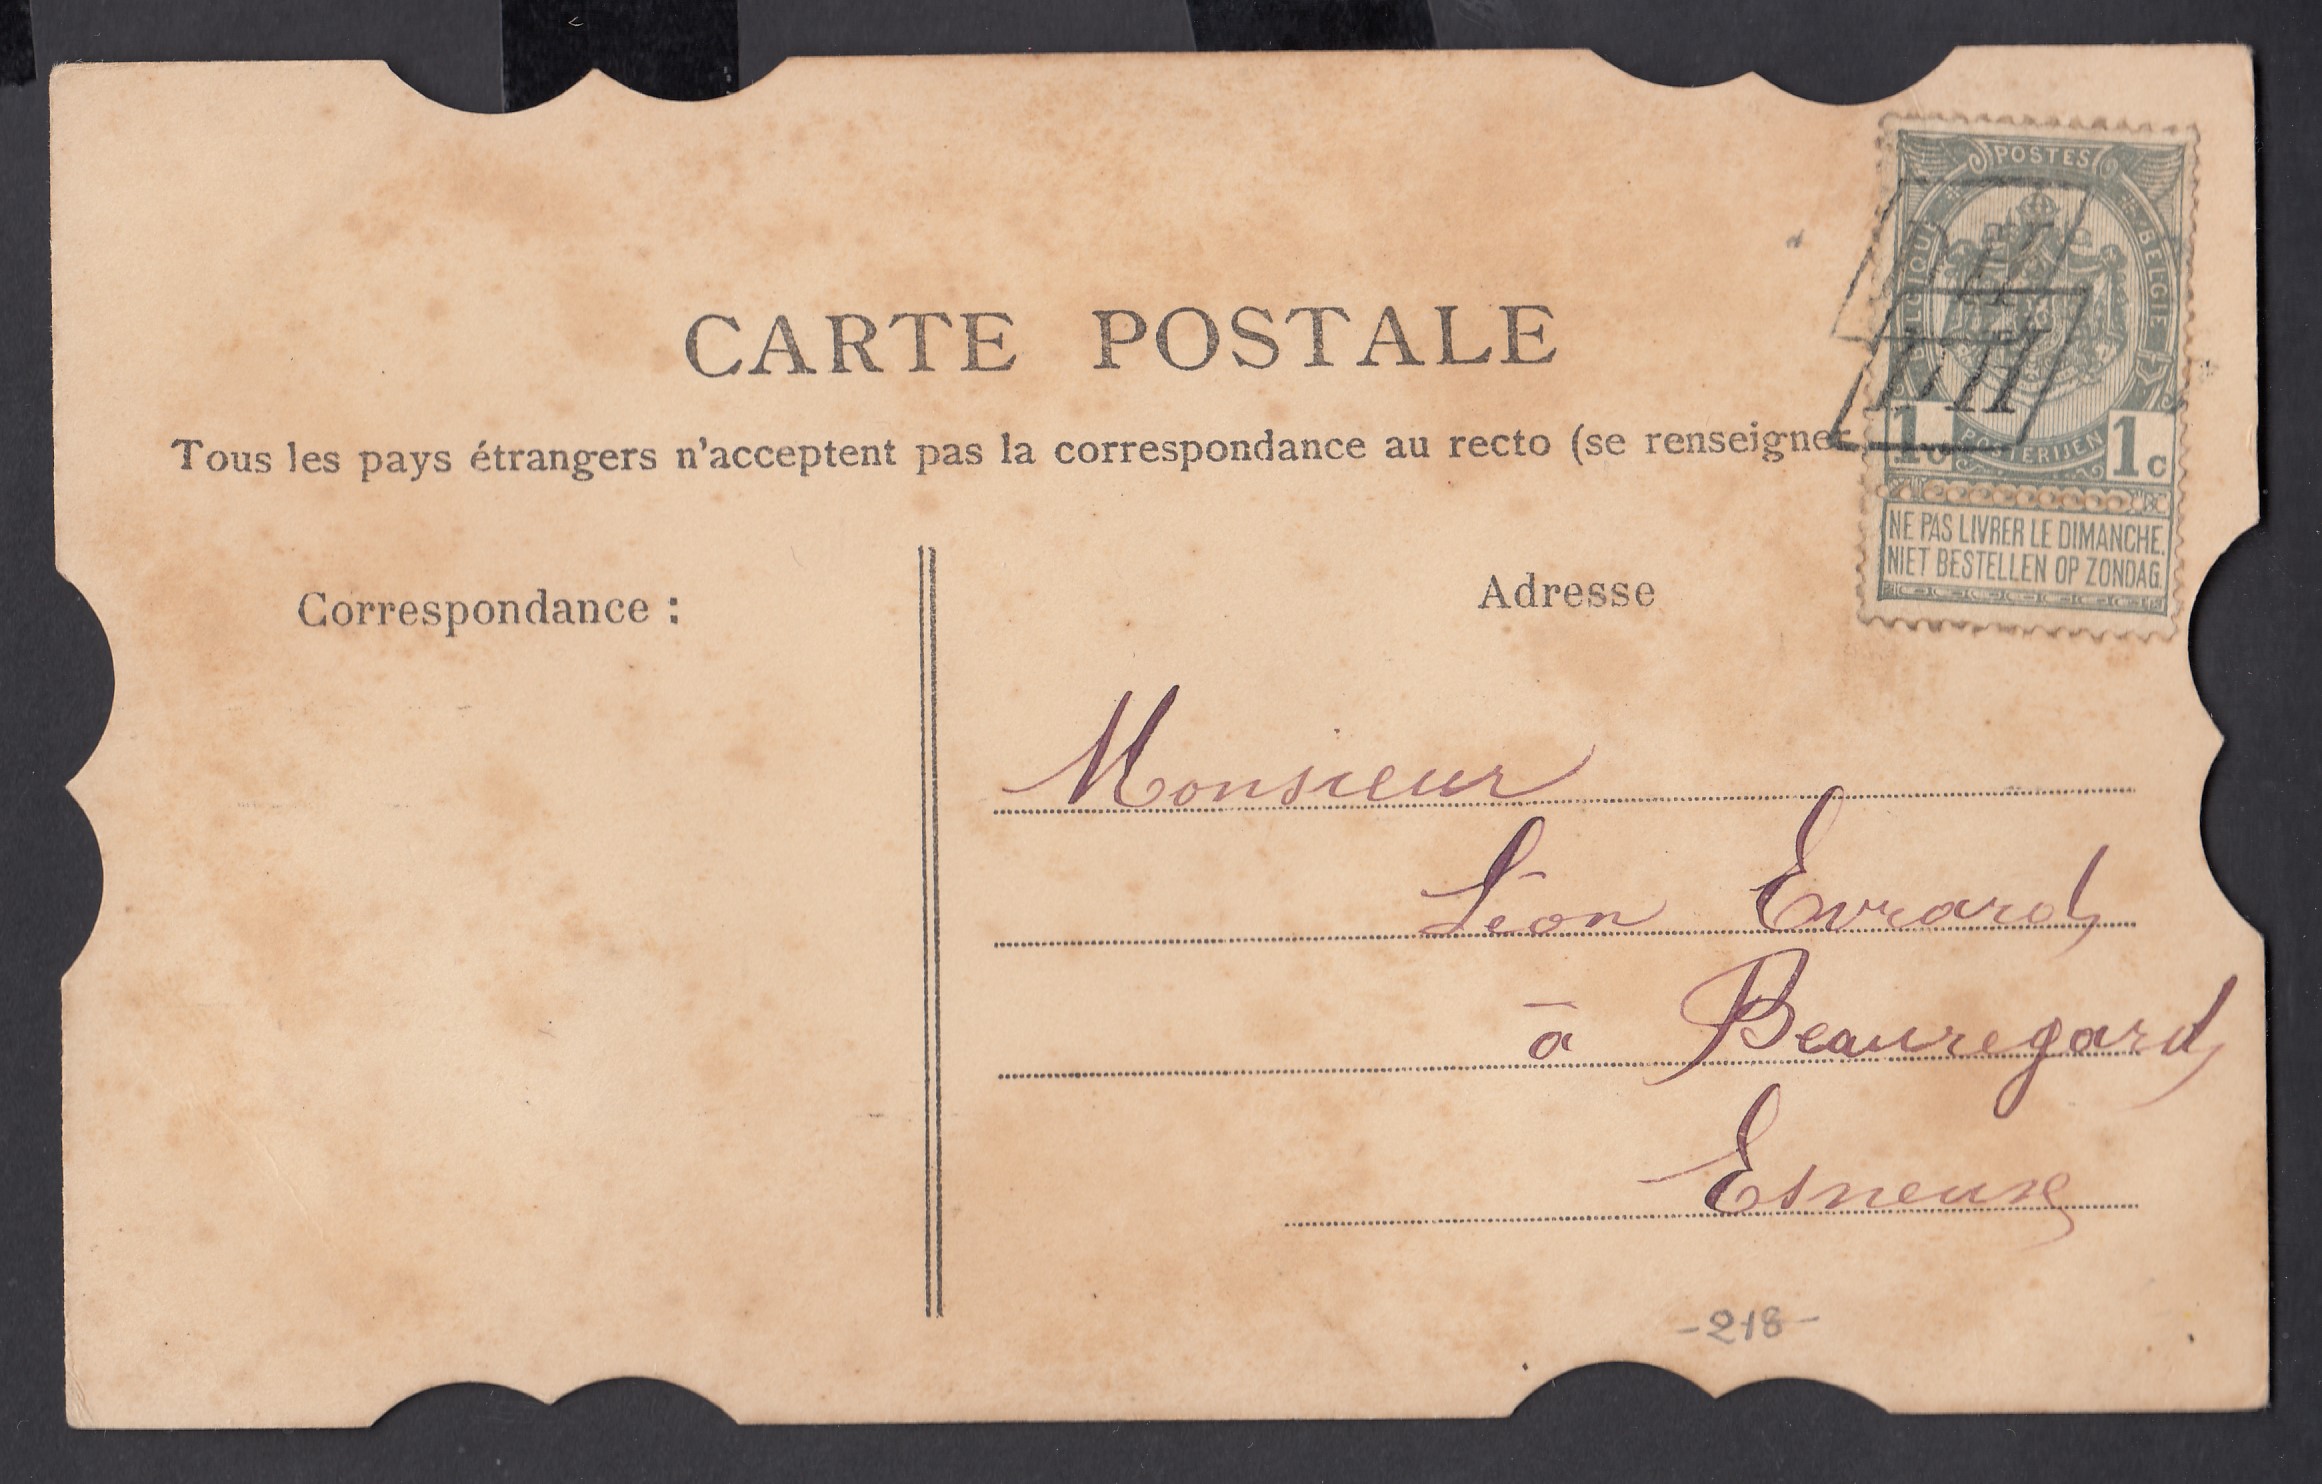 CARTE POSTALE
Tous les pays étrangers n'acceptent pas la correspondance au recto (se renseigner
POSTES
BELGIQUE
BELGIE
POSTERIJEN
1c 1c
NE PAS LIVRER LE DIMANCHE.
NIET BESTELLEN OP ZONDAG.
Correspondance :
Adresse
Monsieur
Léon Evrard
à Beauregard
Esneux
-218-